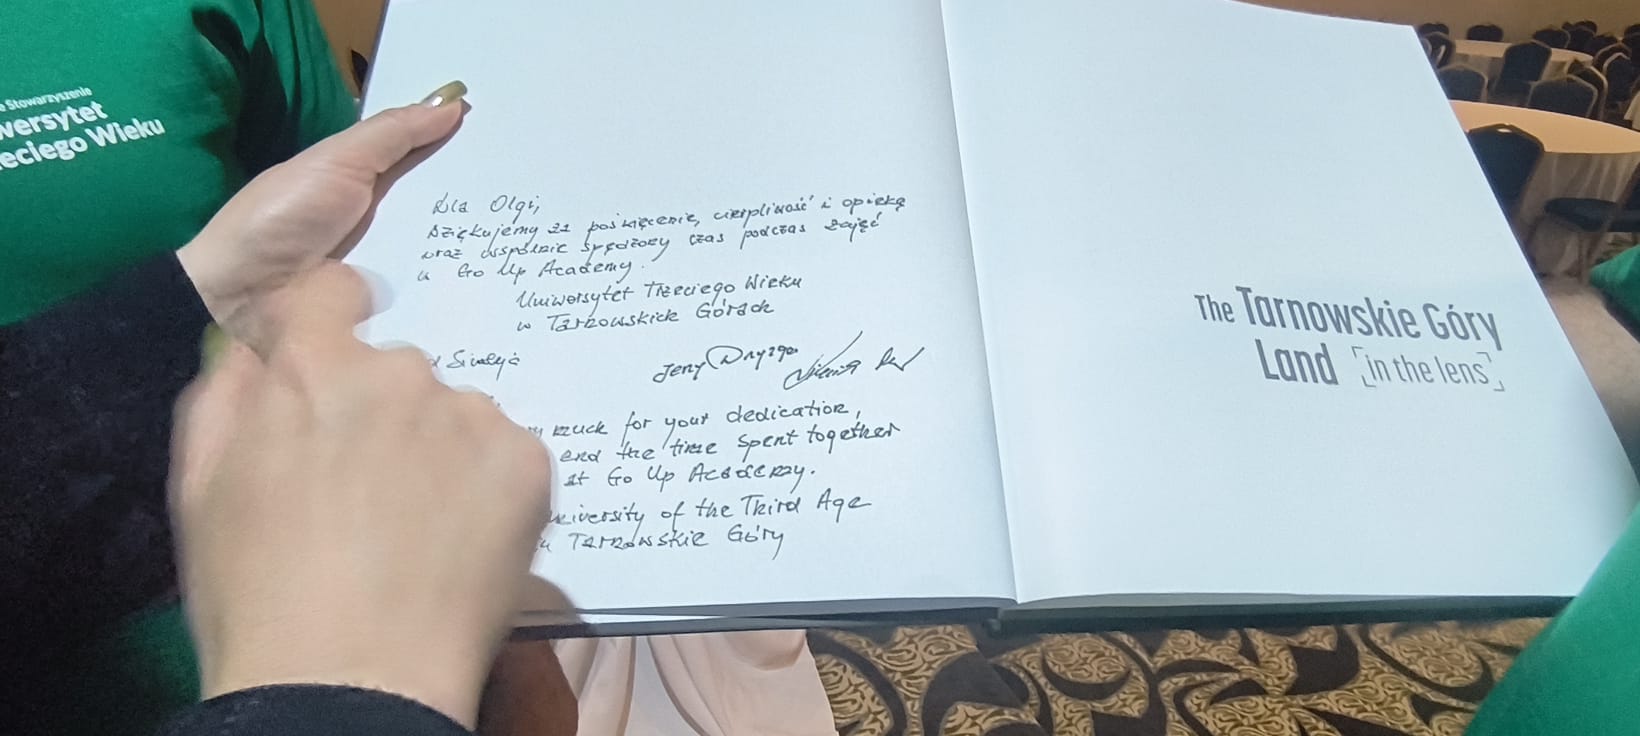 Stowarzyszenie
wersytet
eciego Wieku
Dla Olgi,
Dziękujemy za poświęcenie, cierpliwość i opiekę
oraz wspólnie spędzony czas podczas zajęć
w Go Up Academy.
Uniwersytet Trzeciego Wieku
w Tarnowskich Górach
Jerzy
much for your dedication,
and the time spent together
at Go Up Academy.
University of the Third Age
in Tarnowskie Góry
The Tarnowskie Góry
Land [in the lens]